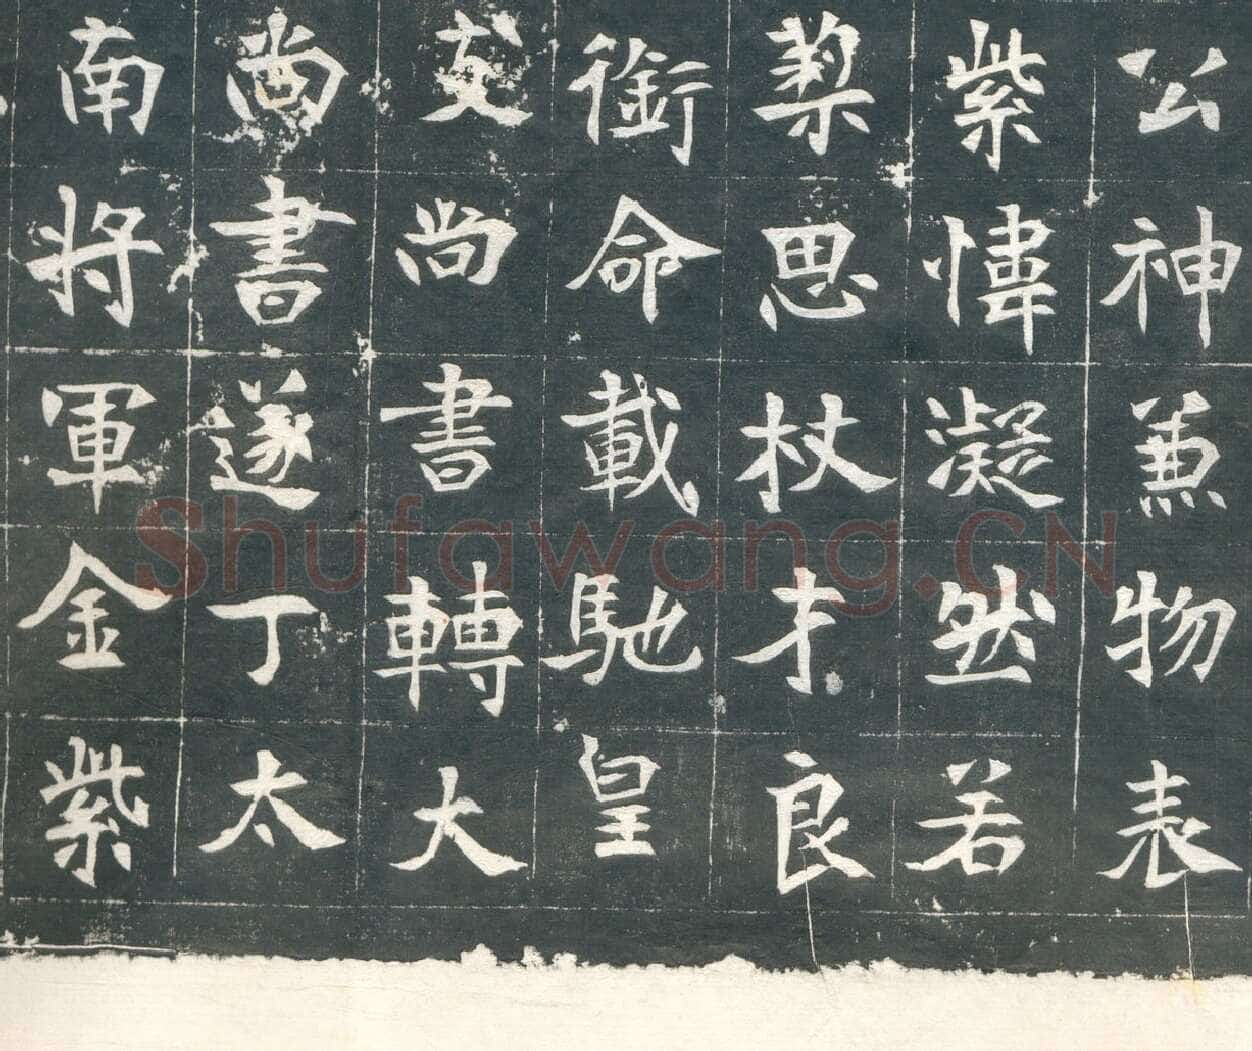 公神兼物表
紫幃凝然若
棃思杖才良
銜命載馳皇
文尚書轉大
尚書遂丁太
南將軍金紫
Shufawang.CN